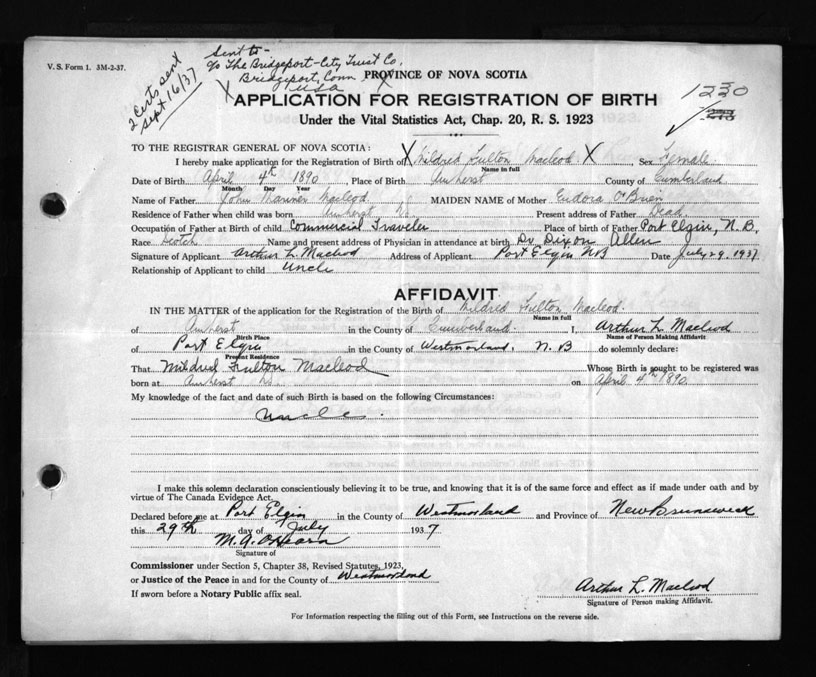 V. S. Form 1. 3M-2-37.
Sent to -
c/o The Bridgeport-City Trust Co.
Bridgeport, Conn.
USA
2 Certs sent
Sept 16/37
PROVINCE OF NOVA SCOTIA
APPLICATION FOR REGISTRATION OF BIRTH
1230
Under the Vital Statistics Act, Chap. 20, R. S. 1923
TO THE REGISTRAR GENERAL OF NOVA SCOTIA:
I hereby make application for the Registration of Birth of X Mildred Fulton Macleod X Sex Female
Name in full
Date of Birth April 4th 1890 Place of Birth Amherst County of Cumberland
Month Day Year
Name of Father John Mariner Macleod MAIDEN NAME of Mother Eudora O'Brien
Residence of Father when child was born Amherst NS Present address of Father Dead
Occupation of Father at Birth of child Commercial Traveler Place of birth of Father Port Elgin, N.B.
Race Scotch Name and present address of Physician in attendance at birth Dr Dixon Allen
Signature of Applicant Arthur L. Macleod Address of Applicant Port Elgin NB Date July 29, 1937
Relationship of Applicant to child Uncle
AFFIDAVIT
IN THE MATTER of the application for the Registration of the Birth of Mildred Fulton Macleod
Name in full
of Amherst in the County of Cumberland I, Arthur L Macleod
Birth Place Name of Person Making Affidavit
of Port Elgin in the County of Westmorland, N.B do solemnly declare:
Present Residence
That Mildred Fulton Macleod Whose Birth is sought to be registered was
born at Amherst NS on April 4th 1890
My knowledge of the fact and date of such Birth is based on the following Circumstances:
Uncle.
I make this solemn declaration conscientiously believing it to be true, and knowing that it is of the same force and effect as if made under oath and by
virtue of The Canada Evidence Act.
Declared before me at Port Elgin in the County of Westmorland and Province of New Brunswick
this 29th day of July 1937
M. A. O'Hearn
Signature of
Commissioner under Section 5, Chapter 38, Revised Statutes, 1923,
or Justice of the Peace in and for the County of Westmorland
If sworn before a Notary Public affix seal.
Arthur L. Macleod
Signature of Person making Affidavit.
For Information respecting the filling out of this Form, see Instructions on the reverse side.